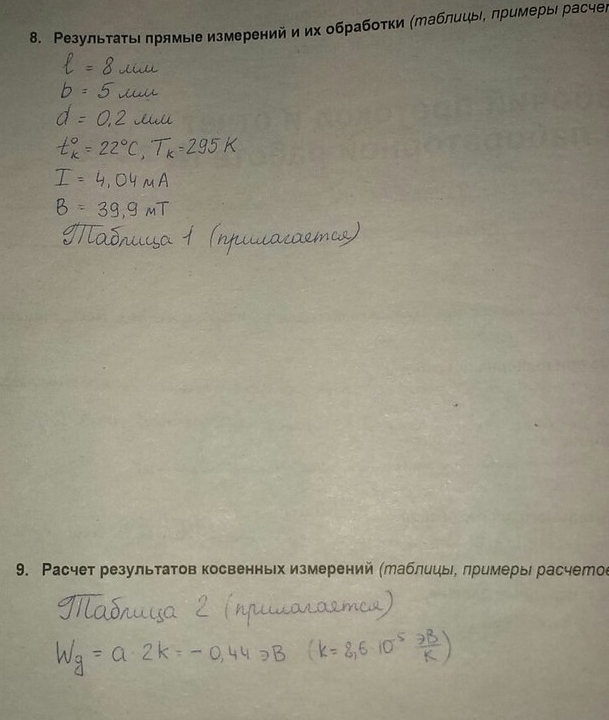 8. Результаты прямые измерений и их обработки (таблицы, примеры расчет
l = 8 мм
b = 5 мм
d = 0,2 мм
t°к = 22°C, Tк = 295 K
I = 4,04 мА
B = 39,9 мТ
Таблица 1 (прилагается)
9. Расчет результатов косвенных измерений (таблицы, примеры расчетов
Таблица 2 (прилагается)
Wg = a · 2k = - 0,44 эВ (k = 8,6 · 10⁻⁵ эВ/К)